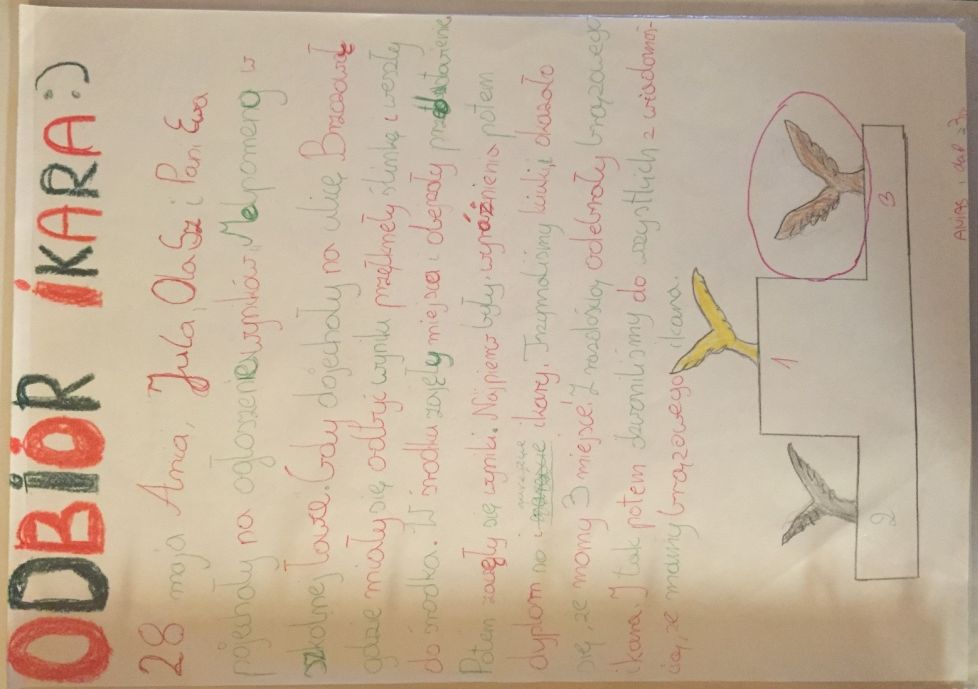 ODBIÓR IKARA :)
28 maja Ania, Jula, Ola Sz i Pani Ewa
pojechały na ogłoszenie wyników „Melpomeną w
szkolnej ławie. Gdy dojechały na ulicę Brzozową
gdzie miały się odbyć wyniki przełknęły ślinkę i weszły
do środka. W środku zajęły miejsca i obejrzały przedstawienie
Potem zaczęły się wyniki. Najpierw były wyróżnienia potem
dyplom no i nareszcie ikary. Trzymaliśmy kciuki, i okazało
się, że mamy 3 miejsce! Z radością odebrały brązowego
ikara. I tak potem dzwoniliśmy do wszystkich z wiadomoś-
cią, że mamy brązowego ikara.
2 1 3